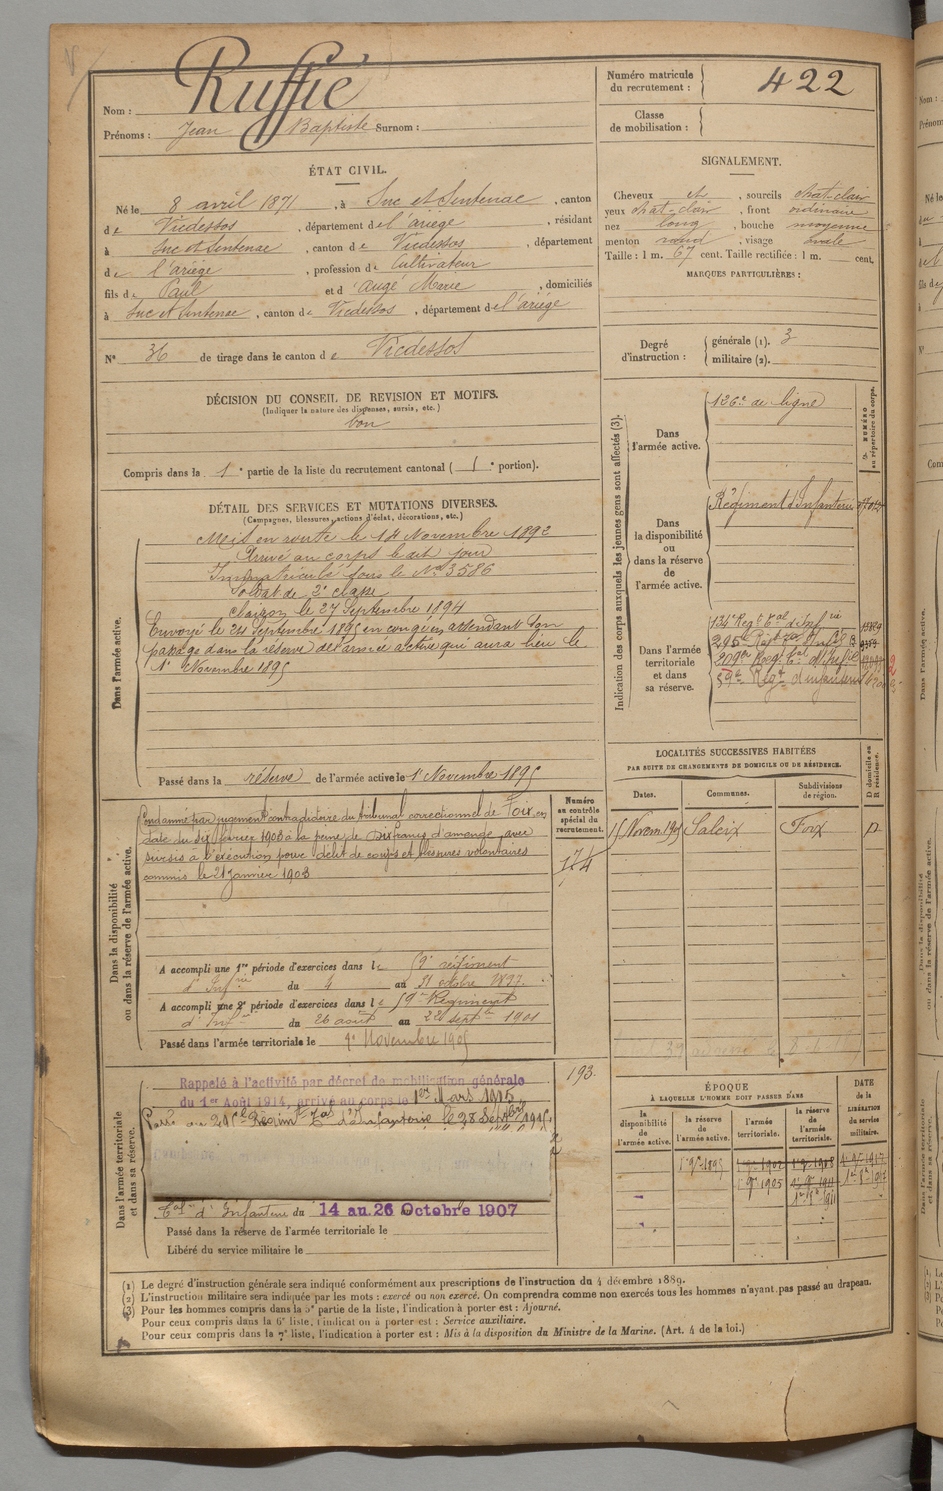 Ruffié
Nom :
Prénoms : Jean Baptiste Surnom :
Numéro matricule du recrutement : 422
Classe de mobilisation :
ÉTAT CIVIL.
Né le 8 avril 1871, à Suc et Sentenac, canton
de Vicdessos, département de l'ariège, résidant
à Suc et Sentenac, canton de Vicdessos, département
de l'ariège, profession de Cultivateur
fils de Paul et d'Augé Marie, domiciliés
à Suc et Sentenac, canton de Vicdessos, département de l'ariège
N° 36 de tirage dans le canton de Vicdessos
SIGNALEMENT.
Cheveux et, sourcils chat-clair
yeux chat-clair, front ordinaire
nez long, bouche moyenne
menton rond, visage ovale
Taille : 1 m. 67 cent. Taille rectifiée : 1 m. cent.
MARQUES PARTICULIÈRES :
Degré d'instruction :
générale (1). 3
militaire (2).
DÉCISION DU CONSEIL DE REVISION ET MOTIFS.
(Indiquer la nature des dispenses, sursis, etc.)
bon
Compris dans la 1e partie de la liste du recrutement cantonal (1e portion).
DÉTAIL DES SERVICES ET MUTATIONS DIVERSES.
(Campagnes, blessures, actions d'éclat, décorations, etc.)
Dans l'armée active.
Mis en route le 14 Novembre 1892
Arrivé au corps le dit jour
Immatriculé sous le No 3586
Soldat de 2e classe
Clairon le 27 Septembre 1894
Envoyé le 24 Septembre 1895 en congé en attendant son
passage dans la réserve de l'armée active qui aura lieu le
1er Novembre 1895
Passé dans la réserve de l'armée active le 1er Novembre 1895
Indication des corps auxquels les jeunes gens sont affectés (3).
NUMÉRO au répertoire du corps.
Dans l'armée active.
126e de ligne
Dans la disponibilité ou dans la réserve de l'armée active.
Régiment d'Infanterie
Dans l'armée territoriale et dans sa réserve.
134e Régt tal d'Infrie
295e
209e Regt tal d'Infie
59e Regt d'infanterie
LOCALITÉS SUCCESSIVES HABITÉES
PAR SUITE DE CHANGEMENTS DE DOMICILE OU DE RÉSIDENCE.
Dates. Communes. Subdivisions de région. D domicile ou R résidence.
15 Novem 1905 Saleix Foix D
Dans la disponibilité ou dans la réserve de l'armée active.
Condamné par jugement contradictoire du tribunal correctionnel de Foix, en
date du dix février 1903 à la peine de Dix francs d'amende avec
sursis à l'exécution pour délit de coups et blessures volontaires
commis le 21 Janvier 1903
Numéro au contrôle spécial du recrutement.
174
A accompli une 1re période d'exercices dans le 59e régiment
d'Infrie du 4 au 31 octobre 1897.
A accompli une 2e période d'exercices dans le 59e Régiment
d'Infrie du 26 août au 22 septbre 1901
Passé dans l'armée territoriale le 1er Novembre 1905
193.
Dans l'armée territoriale et dans sa réserve.
Rappelé à l'activité par décret de mobilisation générale
du 1er Août 1914, arrivé au corps le 1er Mars 1915
Passé au Régimt tal d'Infanterie le 28 Septbre 1915
tal d'Infanterie du 14 au 26 Octobre 1907
Passé dans la réserve de l'armée territoriale le
Libéré du service militaire le
ÉPOQUE
À LAQUELLE L'HOMME DOIT PASSER DANS
la disponibilité de l'armée active. la réserve de l'armée active. l'armée territoriale. la réserve de l'armée territoriale. DATE de la LIBÉRATION du service militaire.
1er 9bre 1895 1er 9bre 1902 1er 9bre 1908 1er 9bre 1917
1er 9bre 1905
(1) Le degré d'instruction générale sera indiqué conformément aux prescriptions de l'instruction du 4 décembre 1889.
(2) L'instruction militaire sera indiquée par les mots : exercé ou non exercé. On comprendra comme non exercés tous les hommes n'ayant pas passé au drapeau.
(3) Pour les hommes compris dans la 5e partie de la liste, l'indication à porter est : Ajourné.
Pour ceux compris dans la 6e liste, l'indication à porter est : Service auxiliaire.
Pour ceux compris dans la 7e liste, l'indication à porter est : Mis à la disposition du Ministre de la Marine. (Art. 4 de la loi.)